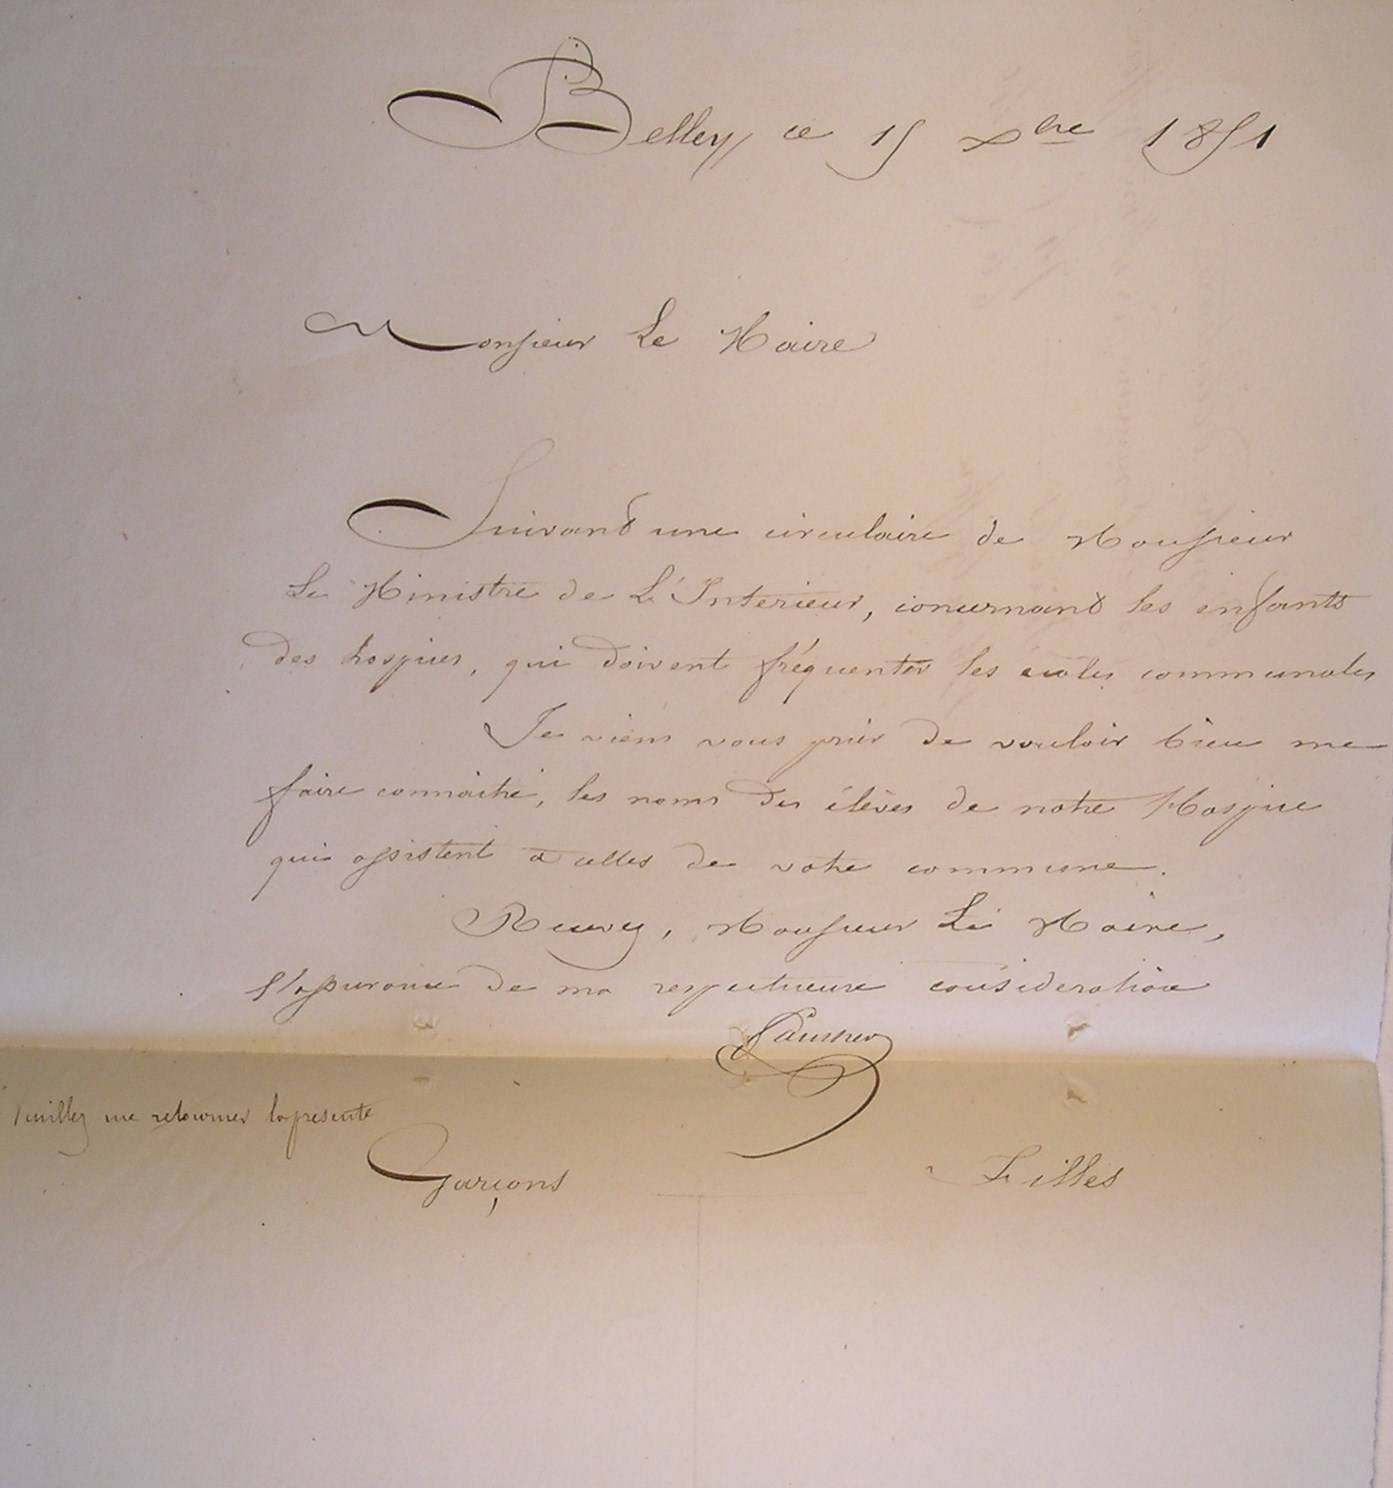 Belley ce 15 Xbre 1851
Monsieur Le Maire
Suivant une circulaire de Monsieur
Le Ministre de L'Interieur, concernant les enfants
des hospices, qui doivent fréquenter les écoles communales
Je viens vous prier de vouloir bien me
faire connaitre, les noms des élèves de notre Hospice
qui assistent à celles de votre commune.
Recevez, Monsieur Le Maire,
l'assurance de ma respectueuse considération
Veuillez me retourner la présente
Garçons Filles